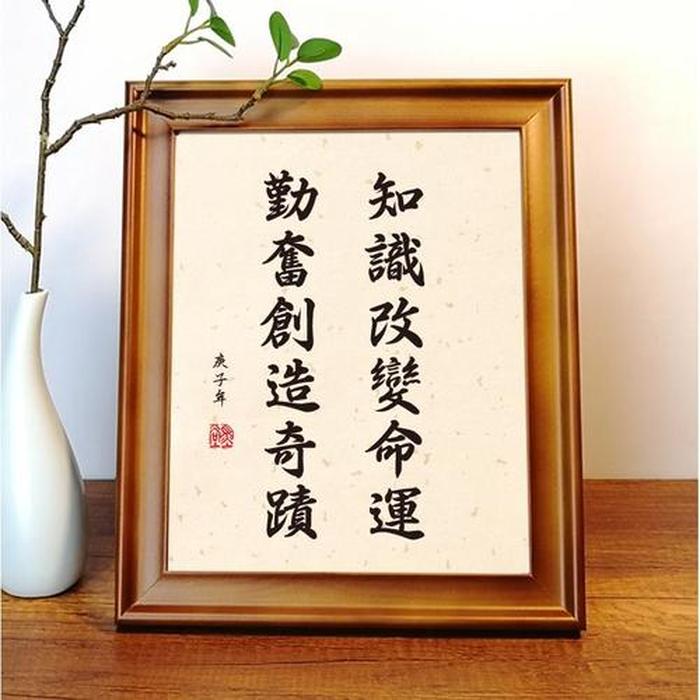 知識改變命運
勤奮創造奇蹟
庚子年